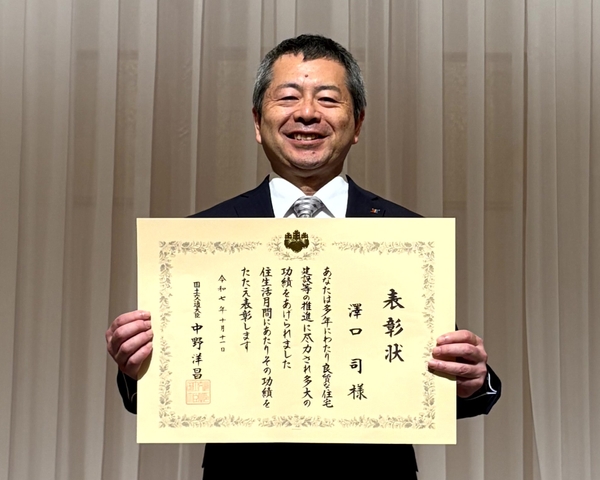 表彰状
澤口 司 様
あなたは多年にわたり良質な住宅
建設等の推進に尽力され多大の
功績をあげられました
住生活月間にあたりその功績を
たたえ表彰します
令和七年十月十一日
国土交通大臣 中野洋昌